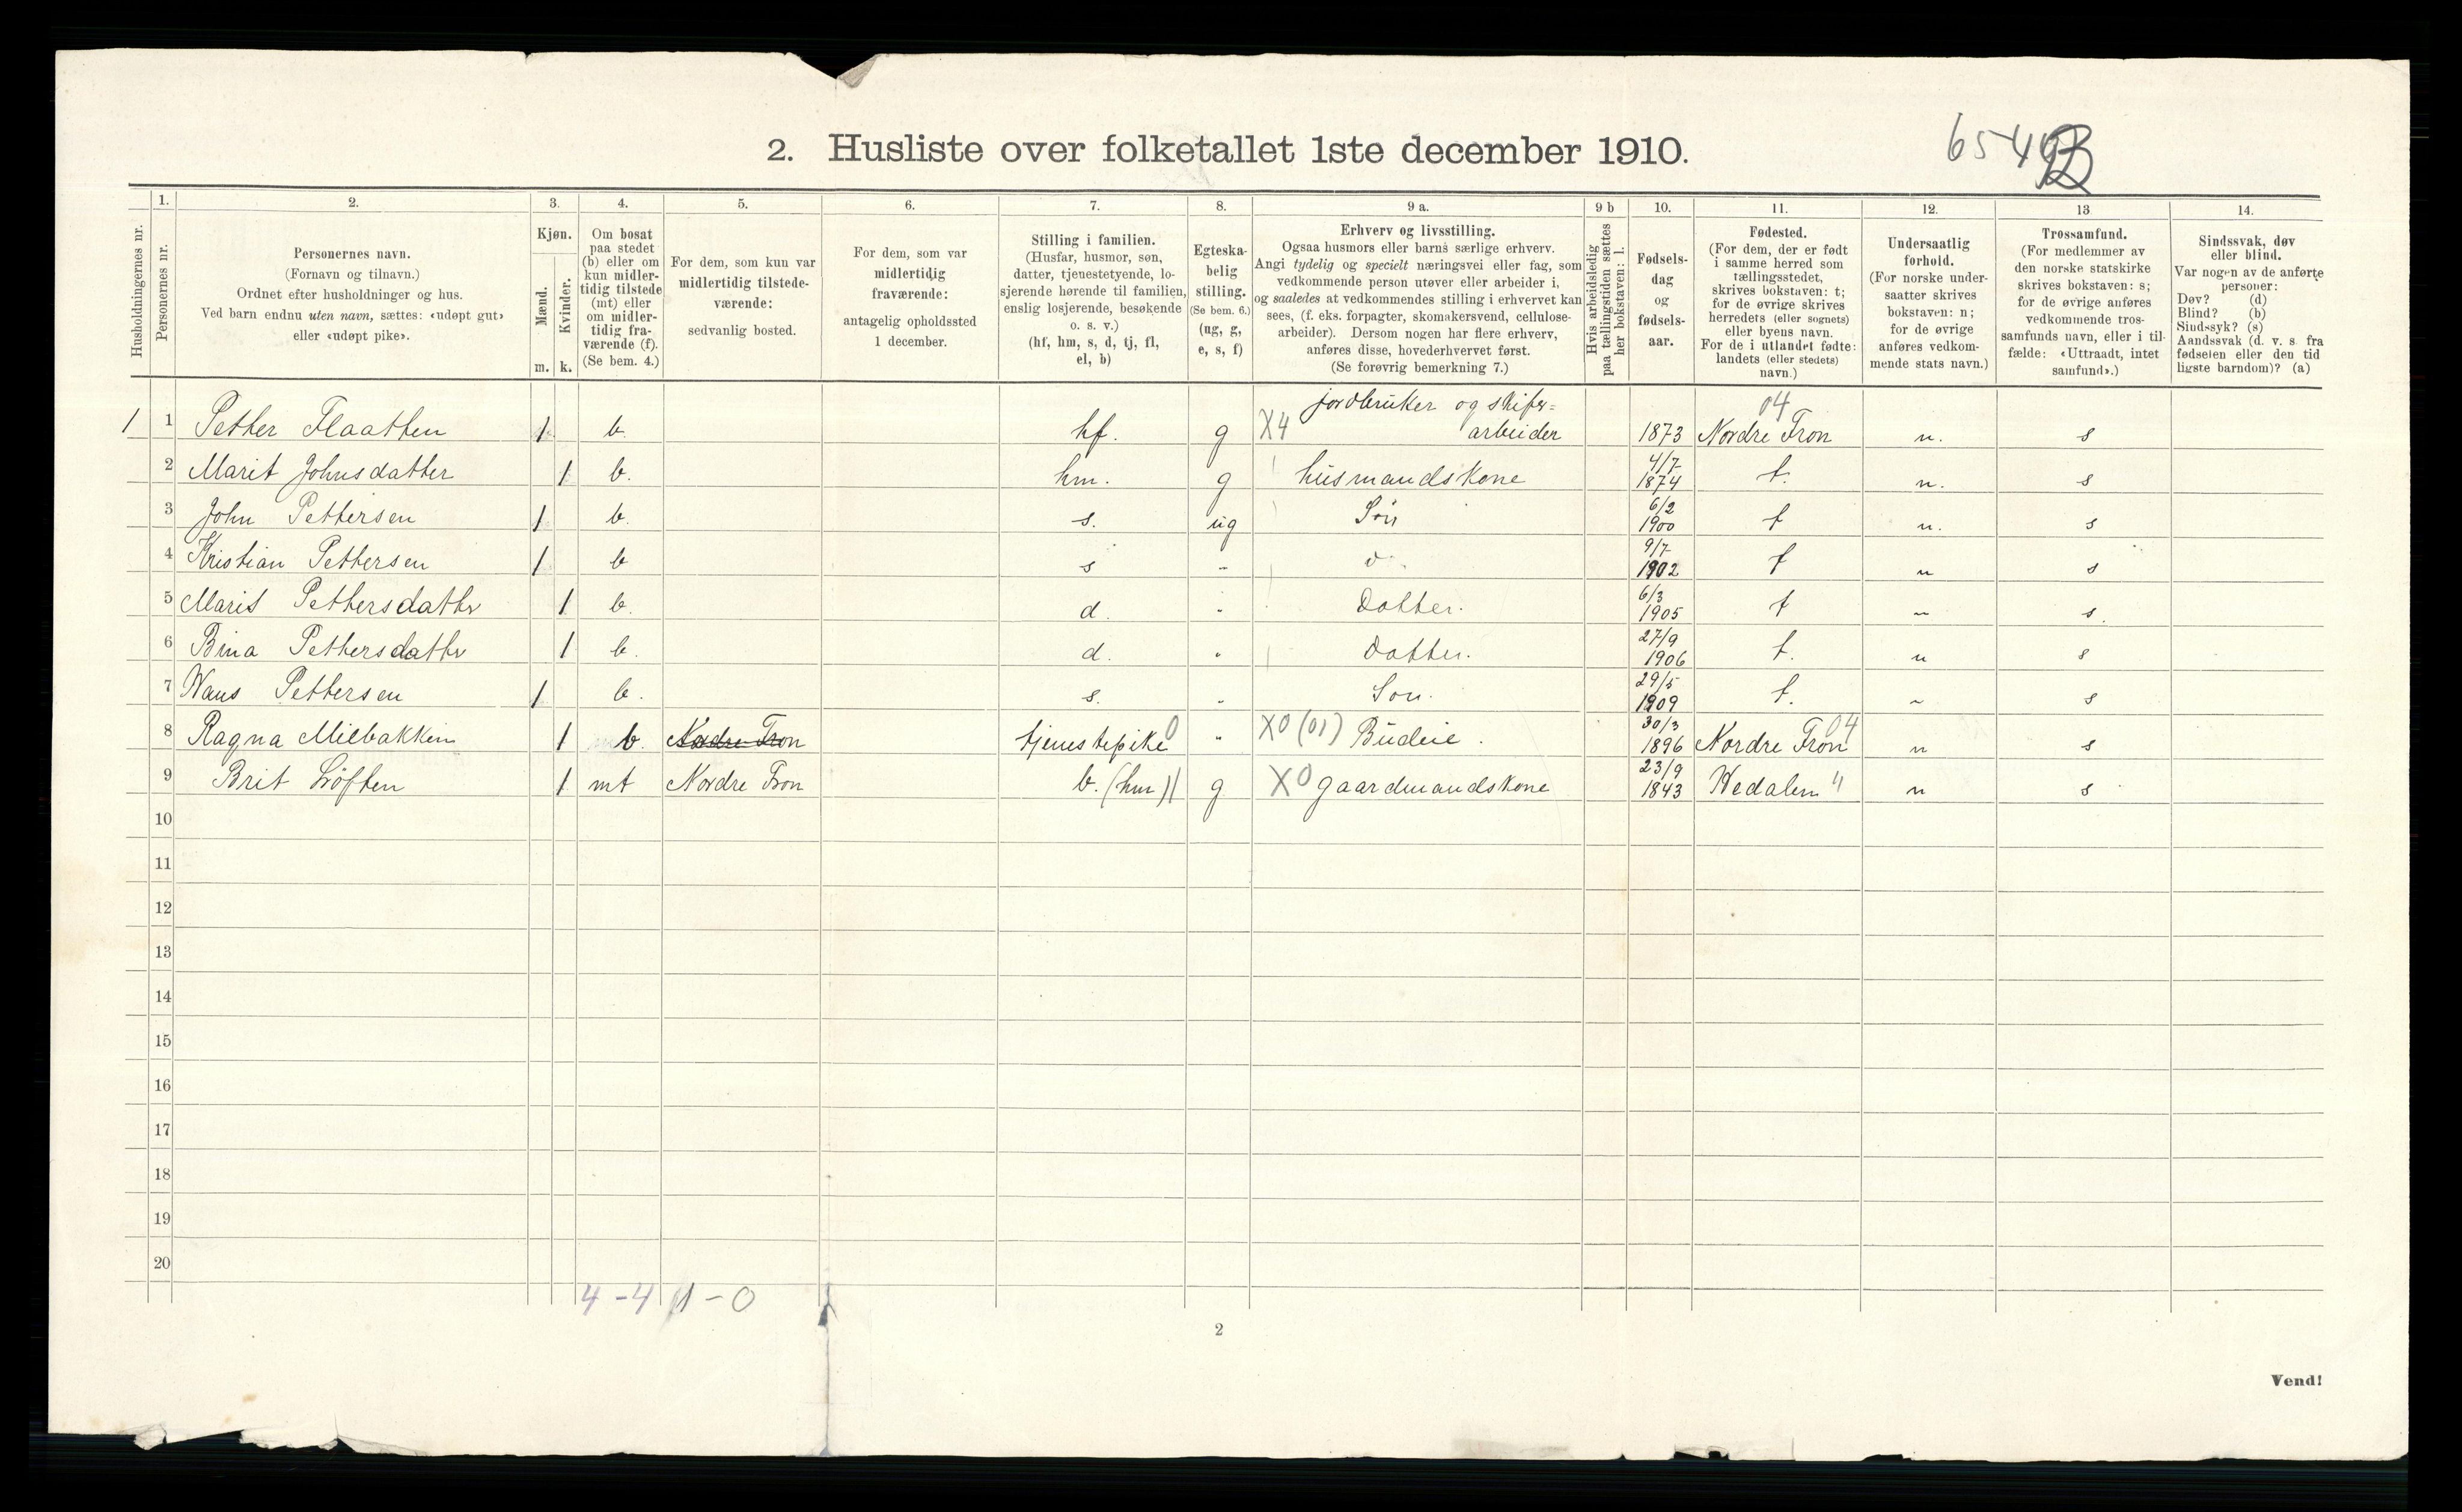 6540 B
2. Husliste over folketallet 1ste december 1910.
Husholdningernes nr.
1.
Personernes nr.
2.
Personernes navn.
(Fornavn og tilnavn.)
Ordnet efter husholdninger og hus.
Ved barn endnu uten navn, sættes: «udøpt gut»
eller «udøpt pike».
3.
Kjøn.
Mænd.
Kvinder.
m. k.
4.
Om bosat
paa stedet
(b) eller om
kun midler-
tidig tilstede
(mt) eller
om midler-
tidig fra-
værende (f).
(Se bem. 4.)
5.
For dem, som kun var
midlertidig tilstede-
værende:
sedvanlig bosted.
6.
For dem, som var
midlertidig
fraværende:
antagelig opholdssted
1 december.
7.
Stilling i familien.
(Husfar, husmor, søn,
datter, tjenestetyende, lo-
sjerende hørende til familien,
enslig losjerende, besøkende
o. s. v.)
(hf, hm, s, d, tj, fl,
el, b)
8.
Egteska-
belig
stilling.
(Se bem. 6.)
(ug, g,
e, s, f)
9 a.
Erhverv og livsstilling.
Ogsaa husmors eller barns særlige erhverv.
Angi tydelig og specielt næringsvei eller fag, som
vedkommende person utøver eller arbeider i,
og saaledes at vedkommendes stilling i erhvervet kan
sees, (f. eks. forpagter, skomakersvend, cellulose-
arbeider). Dersom nogen har flere erhverv,
anføres disse, hovederhvervet først.
(Se forøvrig bemerkning 7.)
9 b
Hvis arbeidsledig
paa tællingstiden sættes
her bokstaven: l.
10.
Fødsels-
dag
og
fødsels-
aar.
11.
Fødested.
(For dem, der er født
i samme herred som
tællingsstedet,
skrives bokstaven: t;
for de øvrige skrives
herredets (eller sognets)
eller byens navn.
For de i utlandet fødte:
landets (eller stedets)
navn.)
12.
Undersaatlig
forhold.
(For norske under-
saatter skrives
bokstaven: n;
for de øvrige
anføres vedkom-
mende stats navn.)
13
Trossamfund.
(For medlemmer av
den norske statskirke
skrives bokstaven: s;
for de øvrige anføres
vedkommende tros-
samfunds navn, eller i til-
fælde: «Uttraadt, intet
samfund».)
14.
Sindssvak, døv
eller blind.
Var nogen av de anførte
personer:
Døv? (d)
Blind? (b)
Sindssyk? (s)
Aandssvak (d. v. s. fra
fødselen eller den tid
ligste barndom)? (a)
jordbruker og skifer= 04
1 1 Petter Flaatten 1 b. hf. g X4 arbeider 1873 Nordre Fron n. s
2 Marit Johnsdatter 1 b. hm. g husmandskone 4/7 1874 t. n. s
3 John Pettersen 1 b. s. ug Søn 6/2 1900 t n. s
4 Kristian Pettersen 1 b s " do 9/7 1902 t n s
5 Marit Pettersdattr 1 b. d. " Datter. 6/3 1905 t n s.
6 Bina Pettersdattr 1 b. d. " Datter. 27/9 1906 t. n s
7 Hans Pettersen 1 b. s. " Søn. 29/5 1909 t. n s
8 Ragna Miebakken 1 b. Nordre Fron tjenestepike 0 " X0 (01) Budeie. 30/3 1896 Nordre Fron 04 n s
9 Brit Løften 1 mt Nordre Fron b. (hm) g X0 gaardmandskone 23/9 1843 Hedalen " n s
10
11
12
13
14
15
16
17
18
19
20
4-4 1-0
2
Vend!